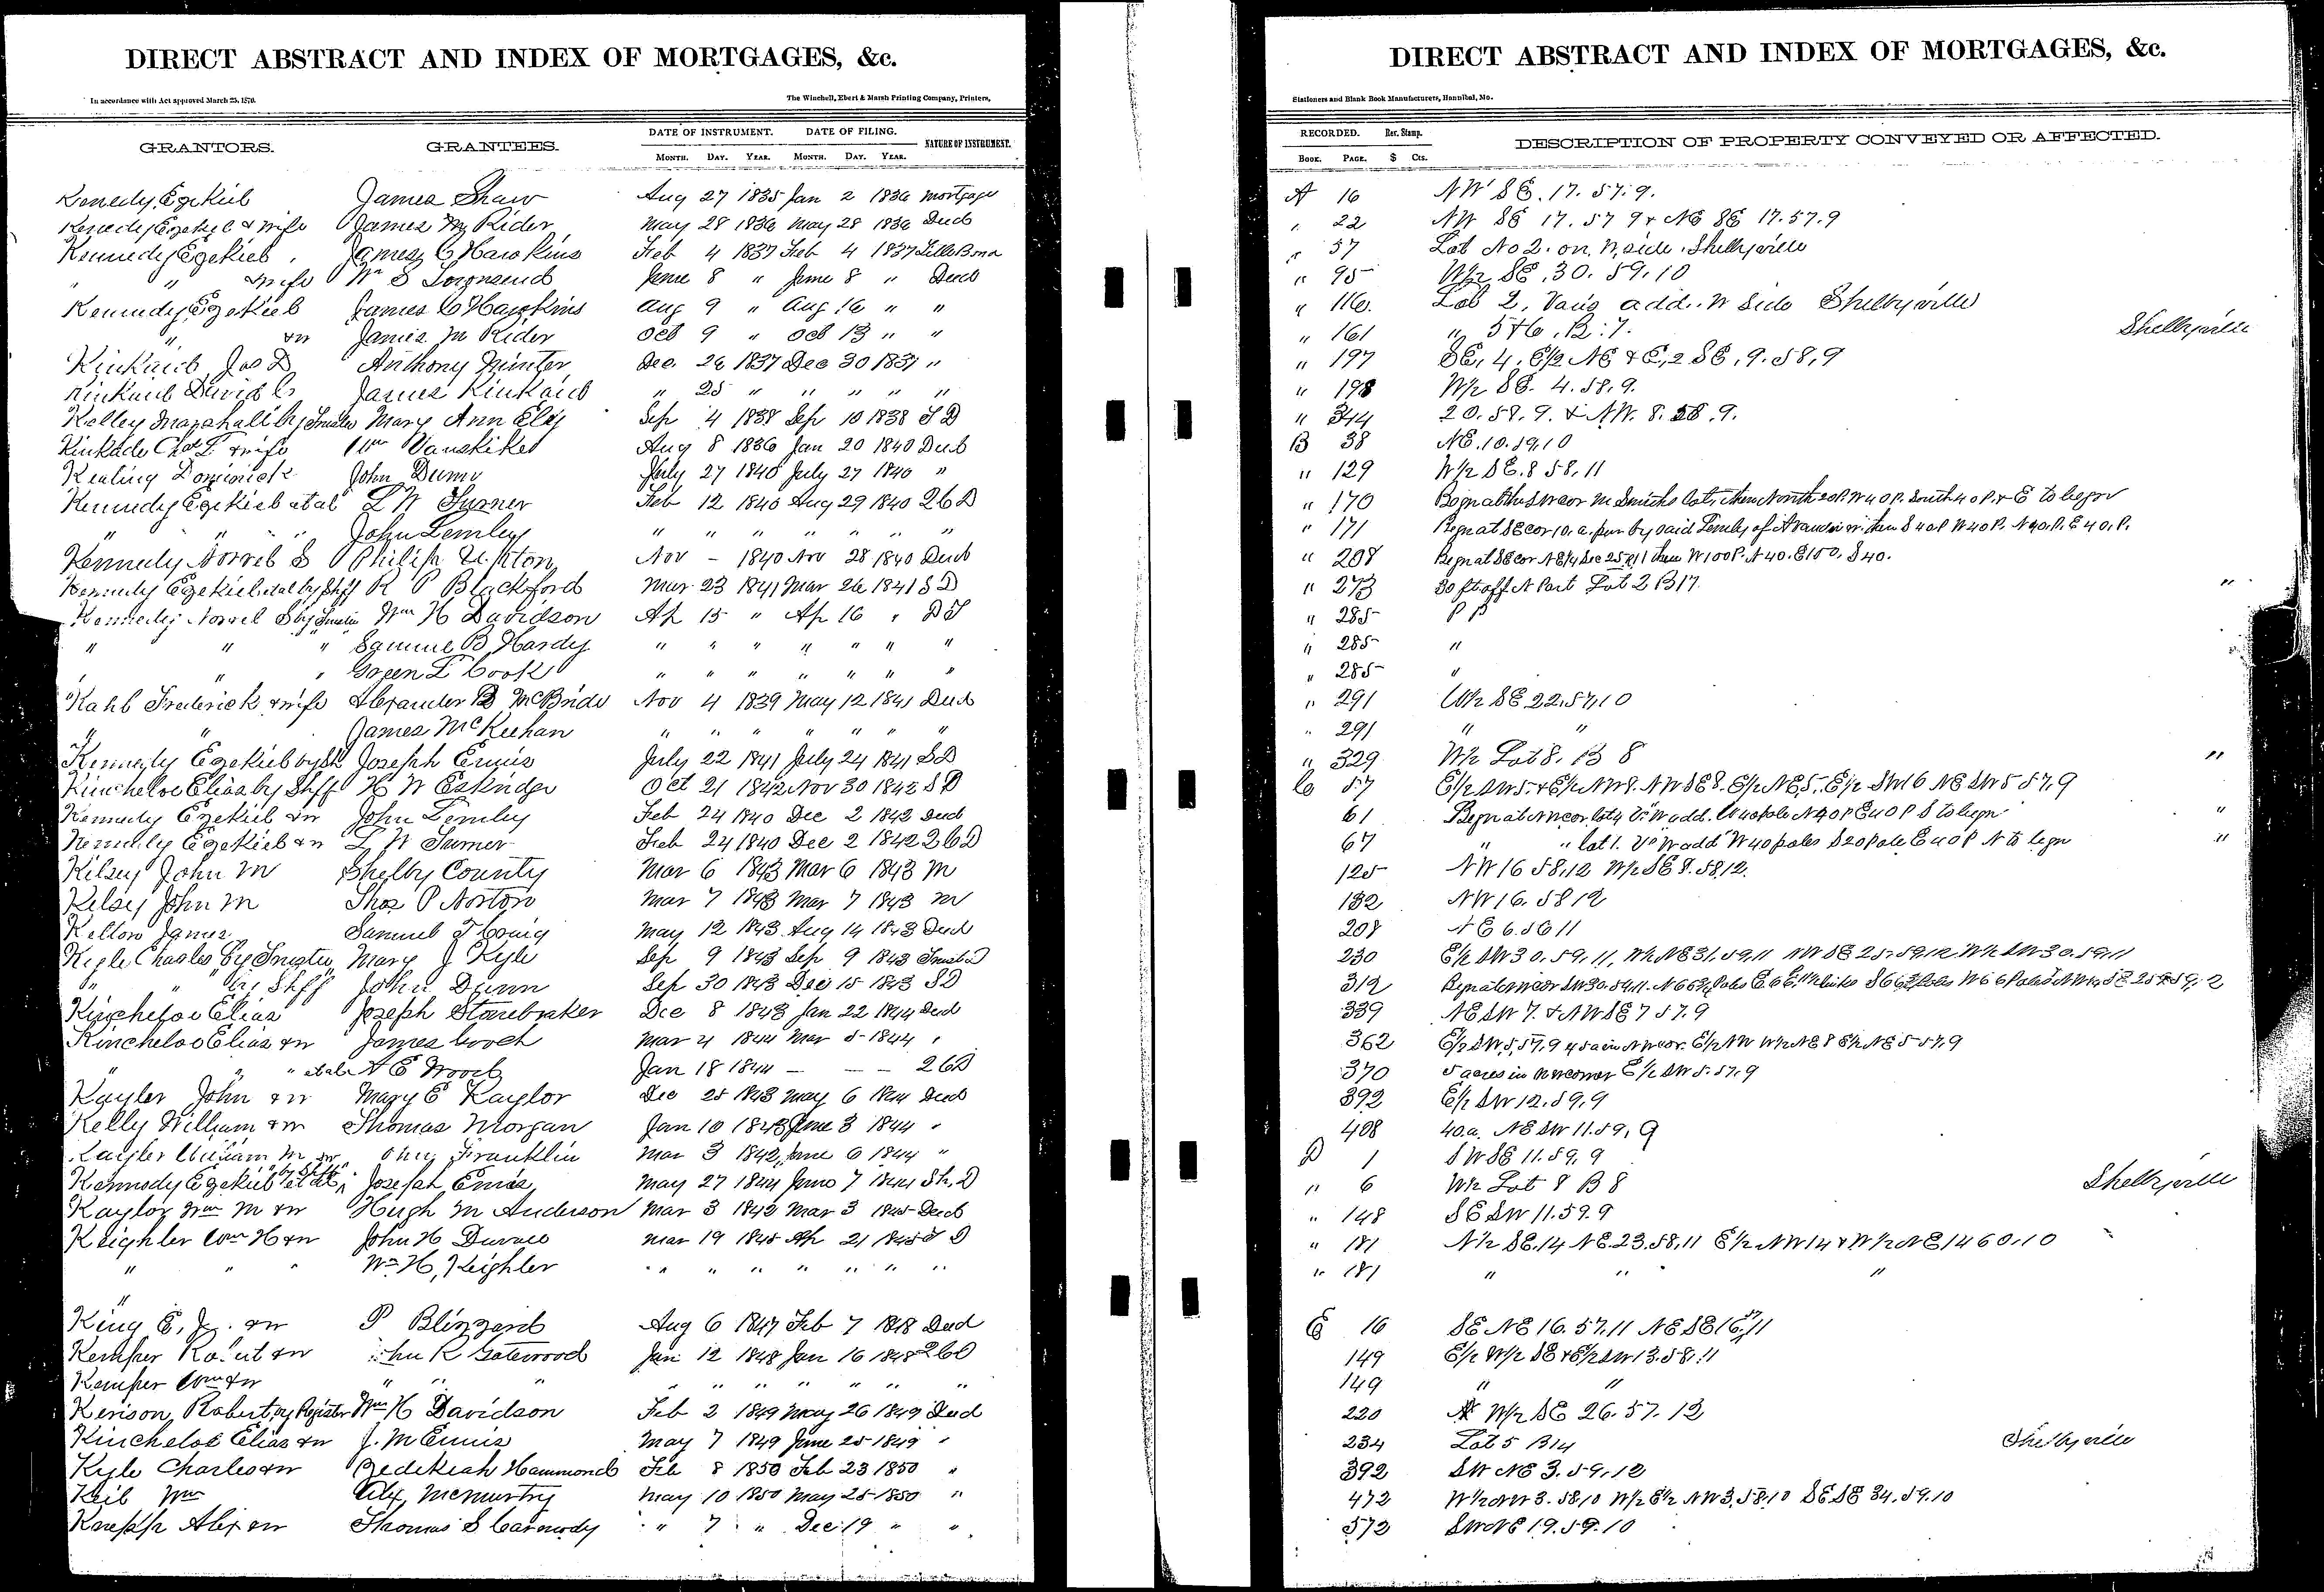 DIRECT ABSTRACT AND INDEX OF MORTGAGES, &c.
In accordance with Act approved March 25, 1870.
The Winchell, Ebert & Marsh Printing Company, Printers,
GRANTORS. GRANTEES. DATE OF INSTRUMENT. DATE OF FILING. NATURE OF INSTRUMENT.
MONTH. DAY. YEAR. MONTH. DAY. YEAR.
Kenedy, Ezekiel James Shaw Aug 27 1835 Jan 2 1836 Mortgage
Kenedy Ezekiel & wife James M Rider May 28 1836 May 28 1836 Deed
Kennedy Ezekiel James C Hawkins Feb 4 1837 Feb 4 1837 Title Bond
" " wife Wm S June 8 " June 8 " Deed
Kennedy Ezekiel James C Hawkins Aug 9 " Aug 16 " "
" &w James M Rider Oct 9 " Oct 13 " "
Kinkaid Jas D Anthony Minter Dec. 26 1837 Dec 30 1837 "
Kinkaid David C James Kinkaid " 25 " " " " "
Kelley Marshall by Trustee Mary Ann Ely Sep 4 1838 Sep 10 1838 T D
Kinkade Chas L & wife Wm Vanskike Aug 8 1836 Jan 20 1840 Deed
Kealing Dominick John Dunn July 27 1840 July 27 1840 "
Kennedy Ezekiel et al L W Sumner Feb 12 1840 Aug 29 1840 2 C D
" " " John Lemley " " " " " " "
Kennedy Norvel S Philip Upton Nov - 1840 Nov 28 1840 Deed
Kennedy Ezekiel et al by Shff R P Blackford Mar 23 1841 Mar 26 1841 S D
Kennedy Norvel S by Trustee Wm H Davidson Ap 15 " Ap 16 " D T
" " " Samuel B Hardy " " " " " " "
" " " Green L Cook " " " " " " "
Kahl Frederick & wife Alexander B McBride Nov 4 1839 May 12 1841 Deed
" " James McKeehan " " " " " " "
Kennedy Ezekiel by Sh Joseph Ennis July 22 1841 July 24 1841 S D
Kincheloe Elias by Shff H W Eskridge Oct 21 1842 Nov 30 1842 S D
Kennedy Ezekiel &w John Lemley Feb 24 1840 Dec 2 1842 Deed
Kennedy Ezekiel &w L W Sumner Feb 24 1840 Dec 2 1842 2 C D
Kilsey John M Shelby County Mar 6 1843 Mar 6 1843 M
Kelsey John M Thos P Norton Mar 7 1843 Mar 7 1843 M
Kellow James Samuel T May 12 1843 Aug 14 1843 Deed
Kyle Charles by Trustee Mary J Kyle Sep 9 1843 Sep 9 1843 Trustee D
" " by Shff John Dunn Sep 30 1843 Dec 15 1843 S D
Kincheloe Elias Joseph Stonebraker Dec 8 1843 Jan 22 1844 Deed
Kincheloe Elias &w James Gooch Mar 4 1844 Mar 5 1844 "
" " " et al A E Wood Jan 18 1844 - - - 2 C D
Kayler John &w Mary E Kaylor Dec 25 1843 May 6 1844 Deed
Kelly William &w Thomas Morgan Jan 10 1843 June 3 1844 "
Kayler William M &w Franklin Mar 3 1842 June 6 1844 "
Kennedy Ezekiel et al by Shff Joseph Ennis May 27 1844 June 7 1844 Sh. D
Kaylor Wm M &w Hugh M Anderson Mar 3 1842 Mar 3 1845 Deed
Keighler Wm H &w John H Duvall Mar 19 1845 Ap 21 1845 D
" " " Wm H, Keighler " " " " " " "
"
King E, Jr. &w P Blizzard Aug 6 1847 Feb 7 1848 Deed
Kemper Robert &w R Gatewood Jan 12 1848 Jan 16 1848 2 C D
Kemper Wm &w " " " " " " " " " "
Kenison, Robert, by Register Wm H Davidson Feb 2 1849 May 26 1849 Deed
Kincheloe Elias &w J. M Ennis May 7 1849 June 25 1849 "
Kyle Charles &w Zedekiah Hammond Feb 8 1850 Feb 23 1850 "
Keil Wm Alex, McMurtry May 10 1850 May 25 1850 "
Knepp Alex &w Thomas S Carmody " 7 " Dec 19 " "
DIRECT ABSTRACT AND INDEX OF MORTGAGES, &c.
Stationers and Blank Book Manufacturers, Hannibal, Mo.
RECORDED. Rev. Stamp. DESCRIPTION OF PROPERTY CONVEYED OR AFFECTED.
BOOK. PAGE. $ Cts.
A 16 NW SE. 17. 57. 9.
" 22 NW SE 17. 57 9 & NE SE 17. 57. 9
" 57 Lot No 2. on. W, side. Shelbyville
" 95 W/2 SE. 30. 59. 10
" 116. Lot 2, Vans add. W Side Shelbyville
" 161 " 5 & 6, B. 7. Shelbyville
" 197 SE, 4, E/2 NE & E,2 SE, 9. 58, 9
" 198 W/2 SE. 4. 58. 9.
" 344 20. 58. 9. & NW. 8. 58. 9.
B 38 NE. 10. 59. 10
" 129 W/2 SE. 8 58. 11
" 170
" 171
" 208 Begn at SE cor NE/4 Sec 25 then W 100 P. N 40. E 100, S 40.
" 273 30 ft off N Part Lot 2 B 17. "
" 285 P P
" 285 "
" 285 "
" 291 W/2 SE 22. 57. 10
" 291 " "
" 329 W/2 Lot 8. B 8 "
C 57 E/2 SW 5. & E/2 NW 8. NW SE 8. E/2 NE 5. E/2 SW 16 NE SW 5 57, 9
61 "
67 " " lot 1. Vs W add W 40 poles S 20 Pole E 40 P N to begn "
125 NW 16 58. 12 W/2 SE 8. 58. 12.
132 NW 16. 58 12
208 NE 6. 56 11
230 E/2 SW 30. 59. 11, W/2 NE 31. 59. 11 NW SE 25. 59. 12 W/2 SW 30. 59. 11
312
339 NE SW 7. & NW SE 7 57. 9
362 E/2 SW 5, 57, 9 45 a in NW cor. E/2 NW W/2 NE 8 E/2 NE 5 57, 9
370 5 acres in NW corner E/2 SW 5. 57. 9
392 E/2 SW 12. 59. 9
408 40. a. NE SW 11. 59, 9
D 1 SW SE 11. 59. 9
" 6 W/2 Lot 8 B 8 Shelbyville
" 148 SE SW 11. 59. 9
" 181 N/2 SE. 14 NE. 23. 58, 11 E/2 NW 14 & W/2 NE 14 60. 10
" 181 " " "
E 16 SE NE 16. 57. 11 NE SE 16. 57. 11
149 E/2 W/2 SE & E/2 SW 13. 58. 11
149 " "
220 W/2 SE 26. 57. 12
234 Lot 5 B 14 Shelbyville
392 SW NE 3. 59. 12
472 W 1/2 NW 3. 58. 10 W/2 E 1/2 NW 3. 58. 10 SE SE 34. 59. 10
572 SW NE 19. 59. 10